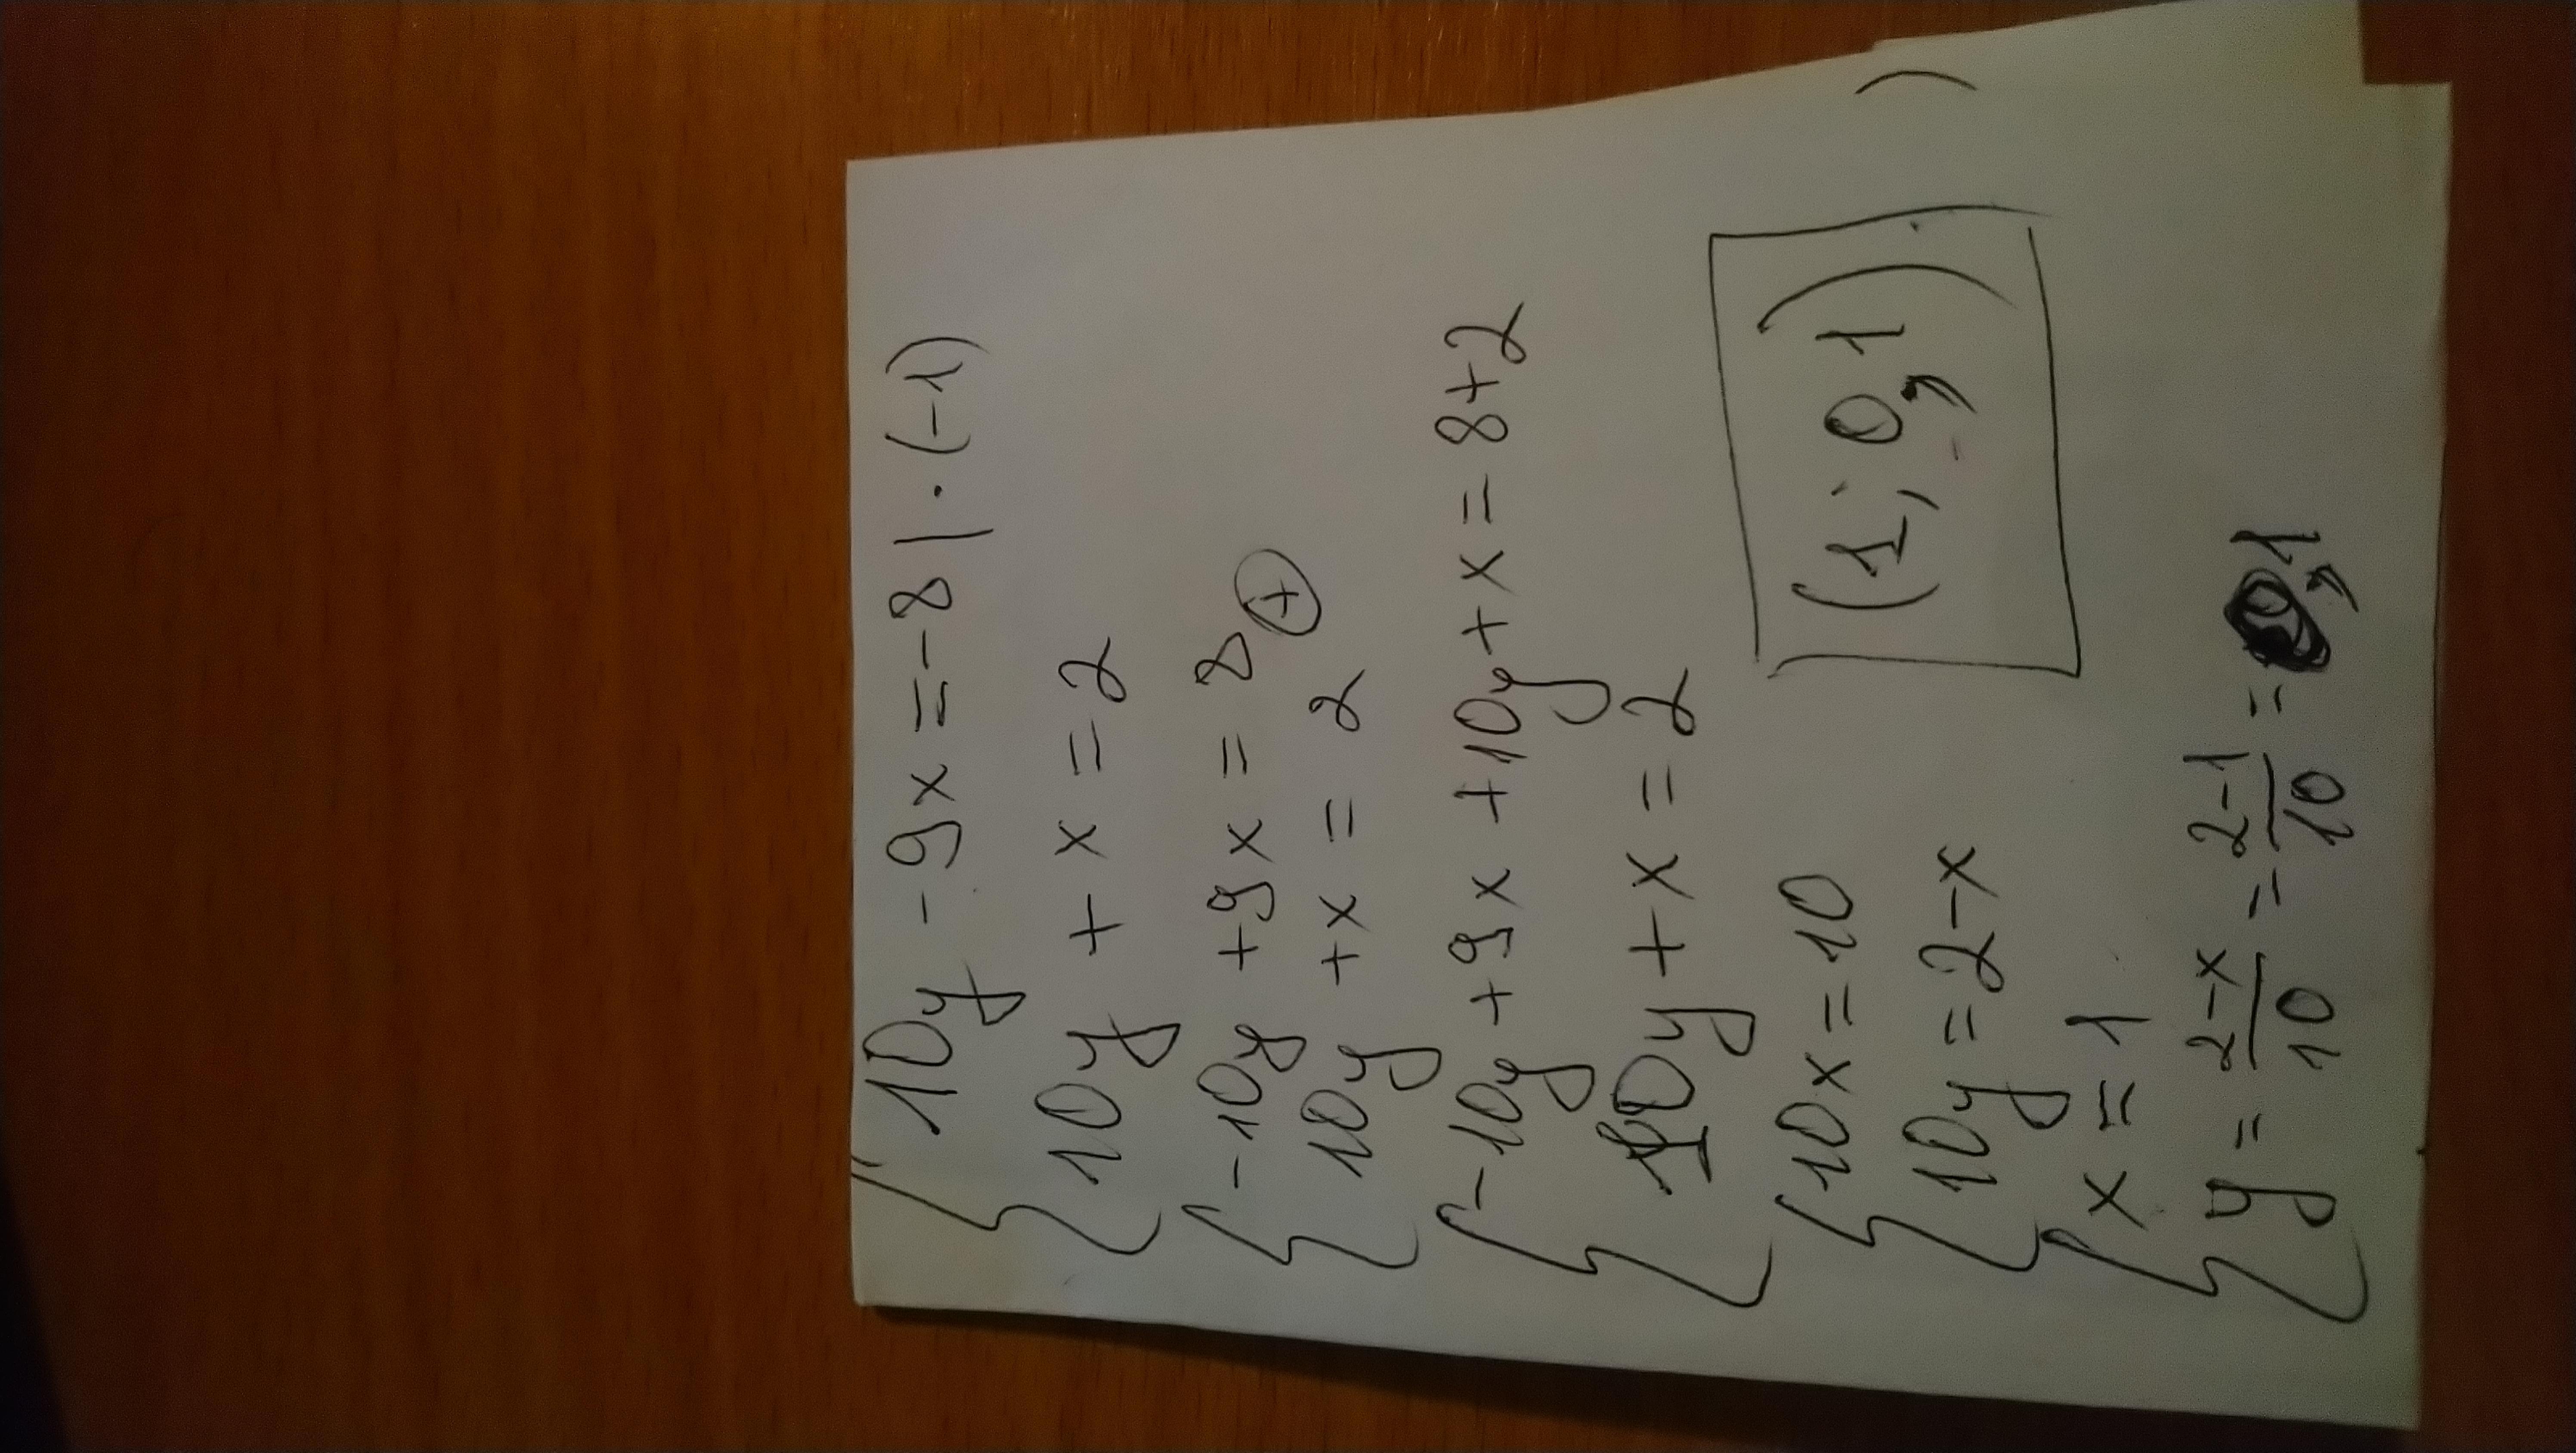 10y - 9x = -8 | · (-1)
10y + x = 2
-10y + 9x = 8 +
10y + x = 2
-10y + 9x + 10y + x = 8 + 2
10y + x = 2
10x = 10
10y = 2 - x
(1; 0,1)
x = 1
y = \frac{2-x}{10} = \frac{2-1}{10} = 0,1